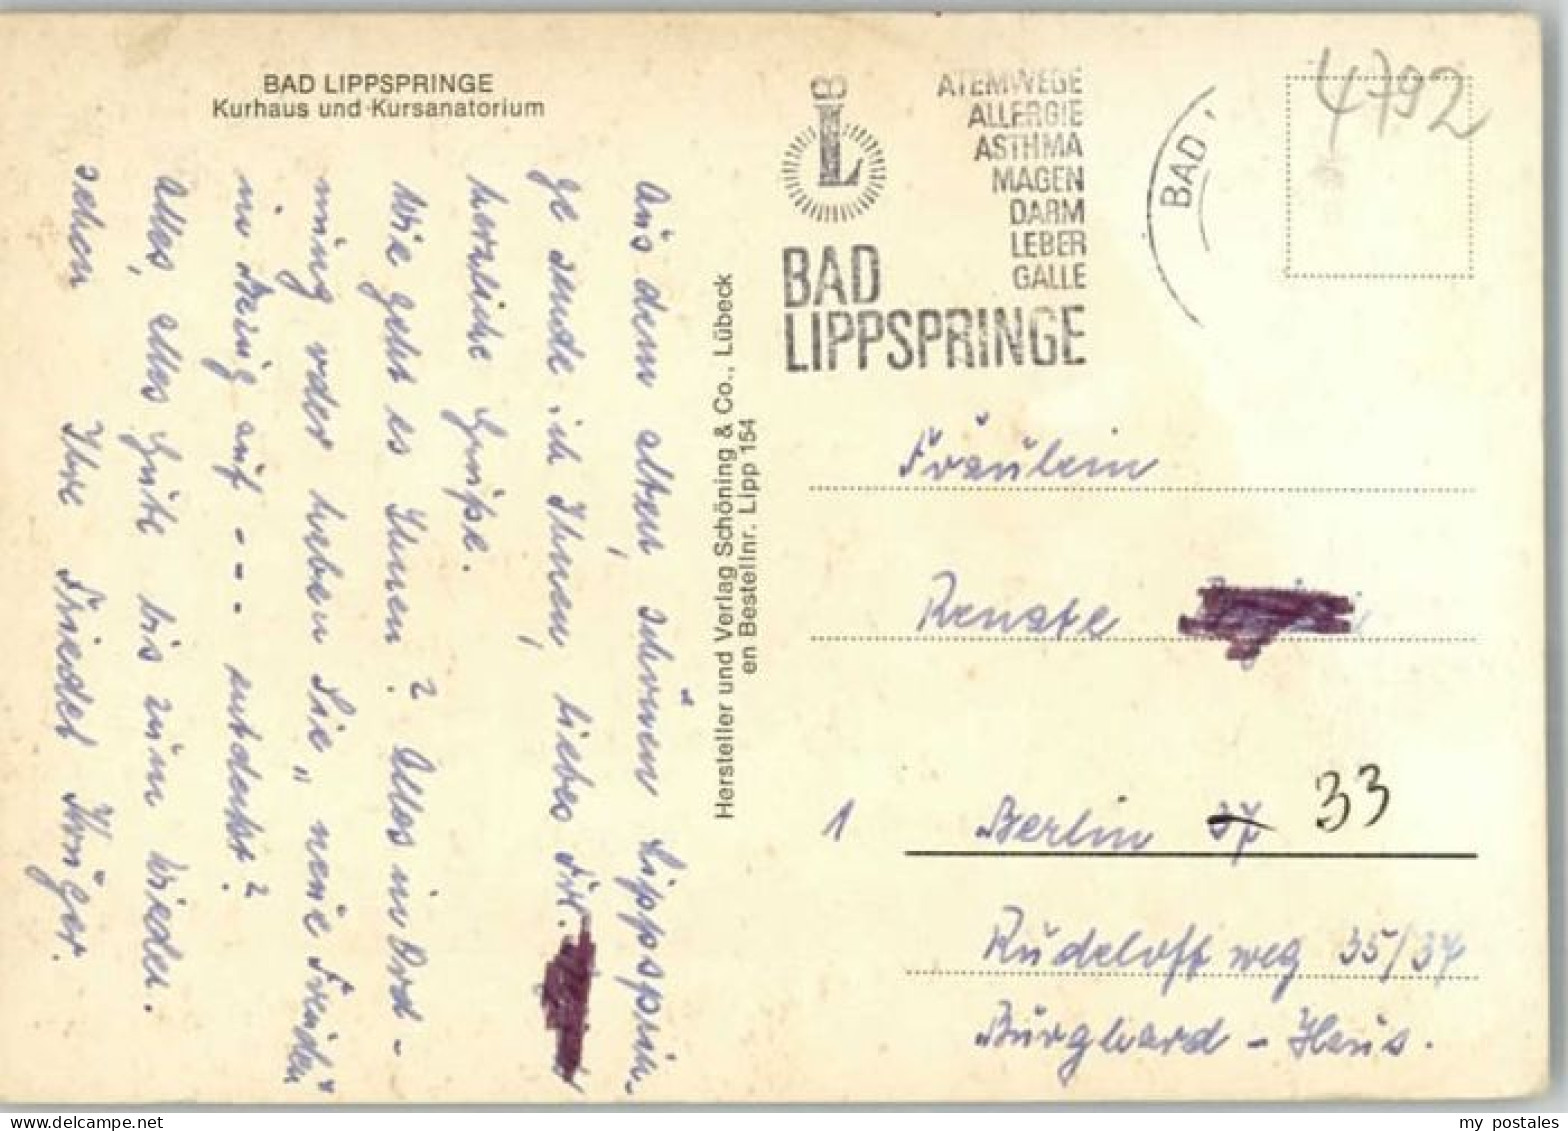 BAD LIPPSPRINGE
Kurhaus und Kursanatorium
Aus dem alten, schönen Lippsprin-
ge sende ich Ihnen, liebes Frl.
herzliche Grüße.
Wie geht es Ihnen? Alles in Ord-
nung oder haben Sie „neue Freuden"
in auf --- entdeckt?
Alles, alles Gute bis zum Wieder
sehen Ihre Friedel Krüger.
Hersteller und Verlag Schöning & Co., Lübeck
en Bestellnr. Lipp 154
B
L
BAD
LIPPSPRINGE
ATEMWEGE
ALLERGIE
ASTHMA
MAGEN
DARM
LEBER
GALLE
BAD
4792
Fräulein
Renate
1 Berlin 37 33
Rudeloffweg 35/37
Burghard-Haus.
my postales